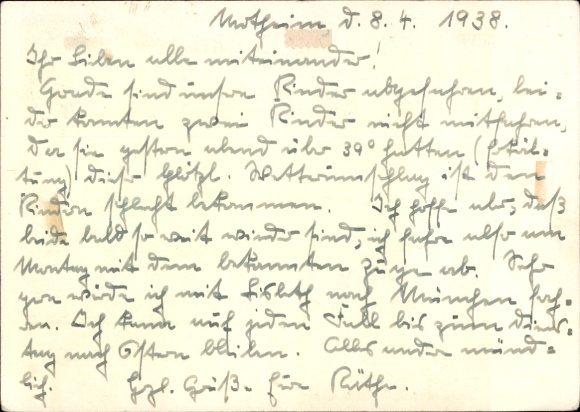 Motheim, d. 8. 4. 1938.
Ihr Lieben alle miteinander!
Gerade sind unsere Kinder abgefahren, lei-
der konnten zwei Kinder nicht mitfahren,
da sie gestern abend über 39° hatten (Erkäl-
tung) dieser plötzl. Wetterumschlag ist den
Kindern schlecht bekommen. Ich hoffe aber, daß
beide bald so weit wieder sind, ich fahre also am
Montag mit dem bekannten Zuge ab. Sehr
gern würde ich mit Lisbeth nach München fah-
ren. Ich kann auf jeden Fall bis zum Diens-
tag nach Ostern bleiben. Alles andere münd-
lich. Hzl. Grüße Eure Käthe.